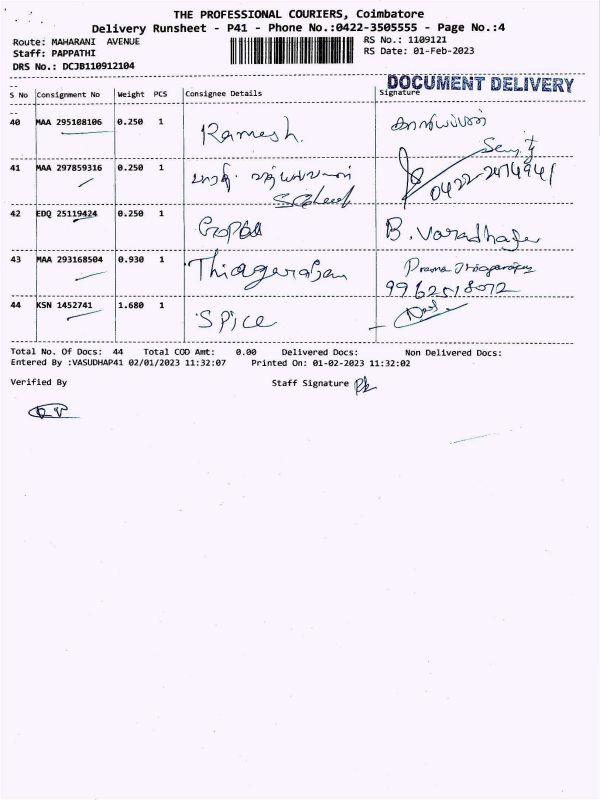 THE PROFESSIONAL COURIERS, Coimbatore
Delivery Runsheet - P41 - Phone No.:0422-3505555 - Page No.:4
Route: MAHARANI AVENUE
Staff: PAPPATHI
DRS No.: DCJB110912104
RS No.: 1109121
RS Date: 01-Feb-2023
DOCUMENT DELIVERY
S No Consignment No Weight PCS Consignee Details Signature
40 MAA 295108106 0.250 1 Ramesh.
41 MAA 297859316 0.250 1
0422-2474941
42 EDQ 25119424 0.250 1 Gopal B. Varadha
43 MAA 293168504 0.930 1 Thiagarajan
9962518072
44 KSN 1452741 1.680 1 Spice
Total No. Of Docs: 44 Total COD Amt: 0.00 Delivered Docs: Non Delivered Docs:
Entered By :VASUDHAP41 02/01/2023 11:32:07 Printed On: 01-02-2023 11:32:02
Verified By Staff Signature